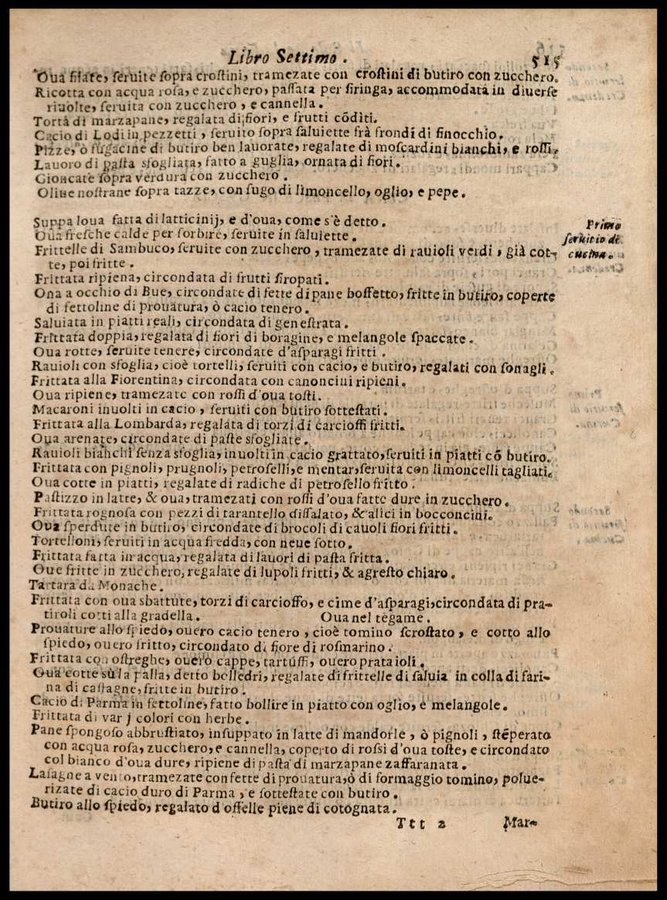 Libro Settimo. 515
Oua filate, ſeruite ſopra croſtini, tramezate con croſtini di butiro con zucchero.
Ricotta con acqua roſa, e zucchero, paſſata per ſiringa, accommodata in diuerſe
riuolte, ſeruita con zucchero, e cannella.
Torta di marzapane, regalata di fiori, e frutti cõditi.
Cacio di Lodi in pezzetti, ſeruito ſopra ſaluiette frà frondi di finocchio.
Pizze, ò fugacine di butiro ben lauorate, regalate di moſcardini bianchi, e roſſi.
Lauoro di paſta sfogliata, fatto a guglia, ornata di fiori.
Gioncate ſopra verdura con zucchero.
Oliue noſtrane ſopra tazze, con ſugo di limoncello, oglio, e pepe.
Suppa loua fatta di latticinij, e d'oua, come s'è detto.
Primo
Oua freſche calde per ſorbire, ſeruite in ſaluiette.
ſeruitio di
Frittelle di Sambuco, ſeruite con zucchero, tramezate di rauioli verdi, già cot-
cucina.
te, poi fritte.
Frittata ripiena, circondata di frutti ſiropati.
Oua a occhio di Bue, circondate di fette di pane boffetto, fritte in butiro, coperte
di fettoline di prouatura, ò cacio tenero.
Saluiata in piatti reali, circondata di geneſtrata.
Frittata doppia, regalata di fiori di boragine, e melangole ſpaccate.
Oua rotte, ſeruite tenere, circondate d'aſparagi fritti.
Rauioli con sfoglia, cioè tortelli, ſeruiti con cacio, e butiro, regalati con ſonagli.
Frittata alla Fiorentina, circondata con canoncini ripieni.
Oua ripiene, tramezate con roſſi d'oua toſti.
Macaroni inuolti in cacio, ſeruiti con butiro ſotteſtati.
Frittata alla Lombarda, regalata di torzi di carcioffi fritti.
Oua arenate, circondate di paſte sfogliate.
Rauioli bianchi ſenza sfoglia, inuolti in cacio grattato, ſeruiti in piatti cõ butiro.
Frittata con pignoli, prugnoli, petroſelli, e mentar, ſeruita con limoncelli tagliati.
Oua cotte in piatti, regalate di radiche di petroſello fritto.
Paſtizzo in latte, & oua, tramezati con roſſi d'oua fatte dure in zucchero.
Frittata rognoſa con pezzi di tarantello diſſalato, & alici in bocconcini.
Oua ſperdute in butiro, circondate di brocoli di cauoli fiori fritti.
Tortelloni, ſeruiti in acqua fredda, con neue ſotto.
Frittata fatta in acqua, regalata di lauori di paſta fritta.
Oue fritte in zucchero, regalate di lupoli fritti, & agreſto chiaro.
Tartara da Monache.
Frittata con oua sbattute, torzi di carcioffo, e cime d'aſparagi, circondata di pra-
tiroli cotti alla gradella. Oua nel tegame.
Prouature allo ſpiedo, ouero cacio tenero, cioè tomino ſcroſtato, e cotto allo
ſpiedo, ouero fritto, circondato di fiore di roſmarino.
Frittata con oſtreghe, ouero cappe, tartuffi, ouero prataioli.
Oua cotte sù la palla, detto belledri, regalate di frittelle di ſaluia in colla di fari-
na di caſtagne, fritte in butiro.
Cacio di Parma in fettoline, fatto bollire in piatto con oglio, e melangole.
Frittata di var j colori con herbe.
Pane ſpongoſo abbruſtiato, inſuppato in latte di mandorle, ò pignoli, ſtẽperato
con acqua roſa, zucchero, e cannella, coperto di roſſi d'oua toſte, e circondato
col bianco d'oua dure, ripiene di paſta di marzapane zaffaranata.
Laſagne a vento, tramezate con fette di prouatura, ò di formaggio tomino, polue-
rizate di cacio duro di Parma, e ſotteſtate con butiro.
Butiro allo ſpiedo, regalato d'offelle piene di cotognata.
Ttt 2 Mar-